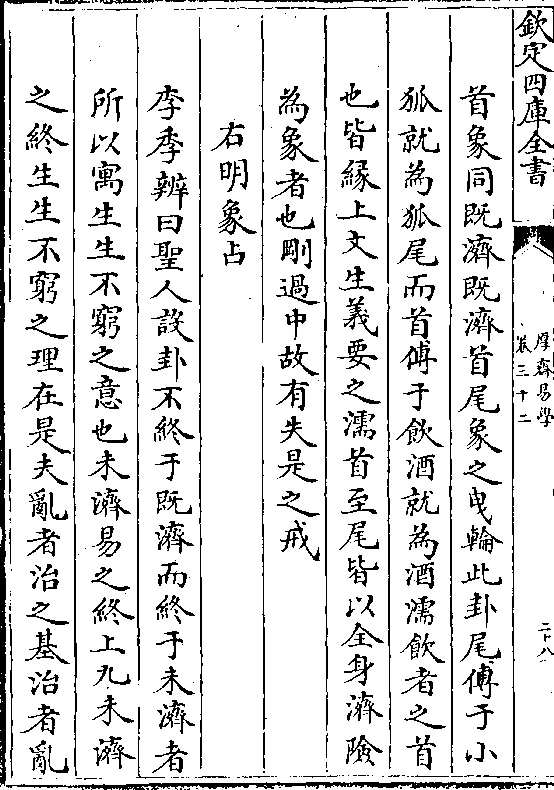 欽定四庫全書
厚齋易學
卷三十二
二十八
首象同既濟既濟首尾象之曳輪此卦尾傅于小
狐就為狐尾而首傅于飲酒就為酒濡飲者之首
也皆緣上文生義要之濡首至尾皆以全身濟險
為象者也剛過中故有失是之戒
右明象占
李季辨曰聖人設卦不終于既濟而終于未濟者
所以寓生生不窮之意也未濟易之終上九未濟
之終生生不窮之理在是夫亂者治之基治者亂